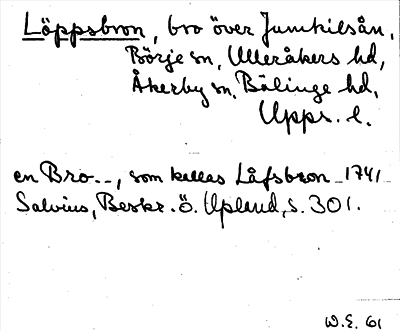 Löppsbron, bro över Jumkilsån,
Börje sn, Ulleråkers hd,
Åkerby sn, Bälinge hd,
Upps. l.
en Bro --, som kallas Låfsbron 1741
Salvius, Beskr. ö. Upland, s. 301.
W.E. 61